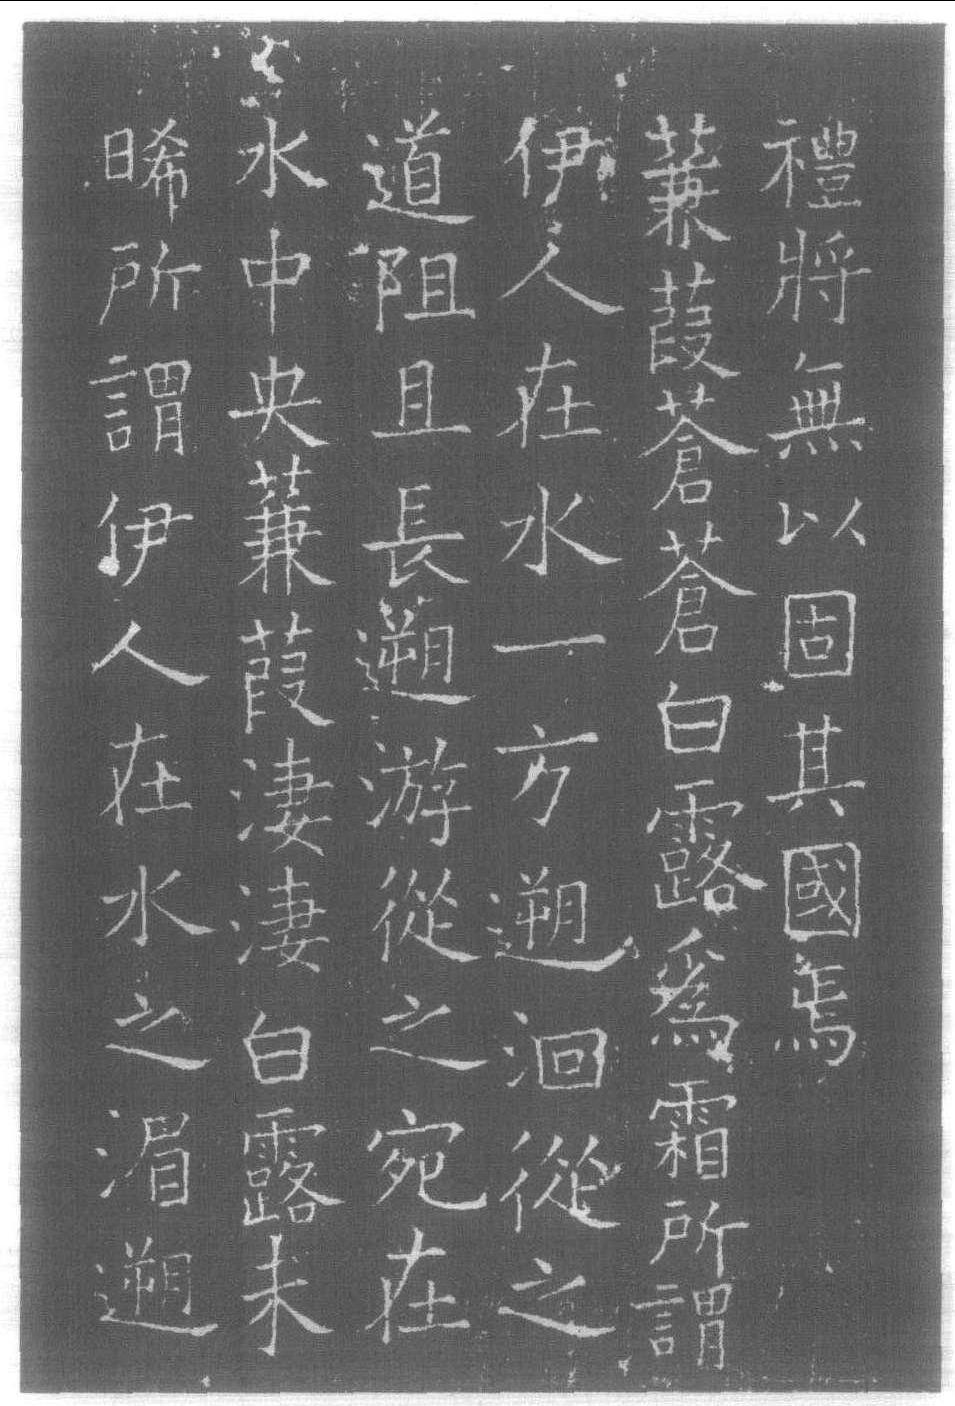 禮將無以固其國焉
蒹葭蒼蒼白露為霜所謂
伊人在水一方遡洄從之
道阻且長遡游從之宛在
水中央蒹葭淒淒白露未
晞所謂伊人在水之湄遡